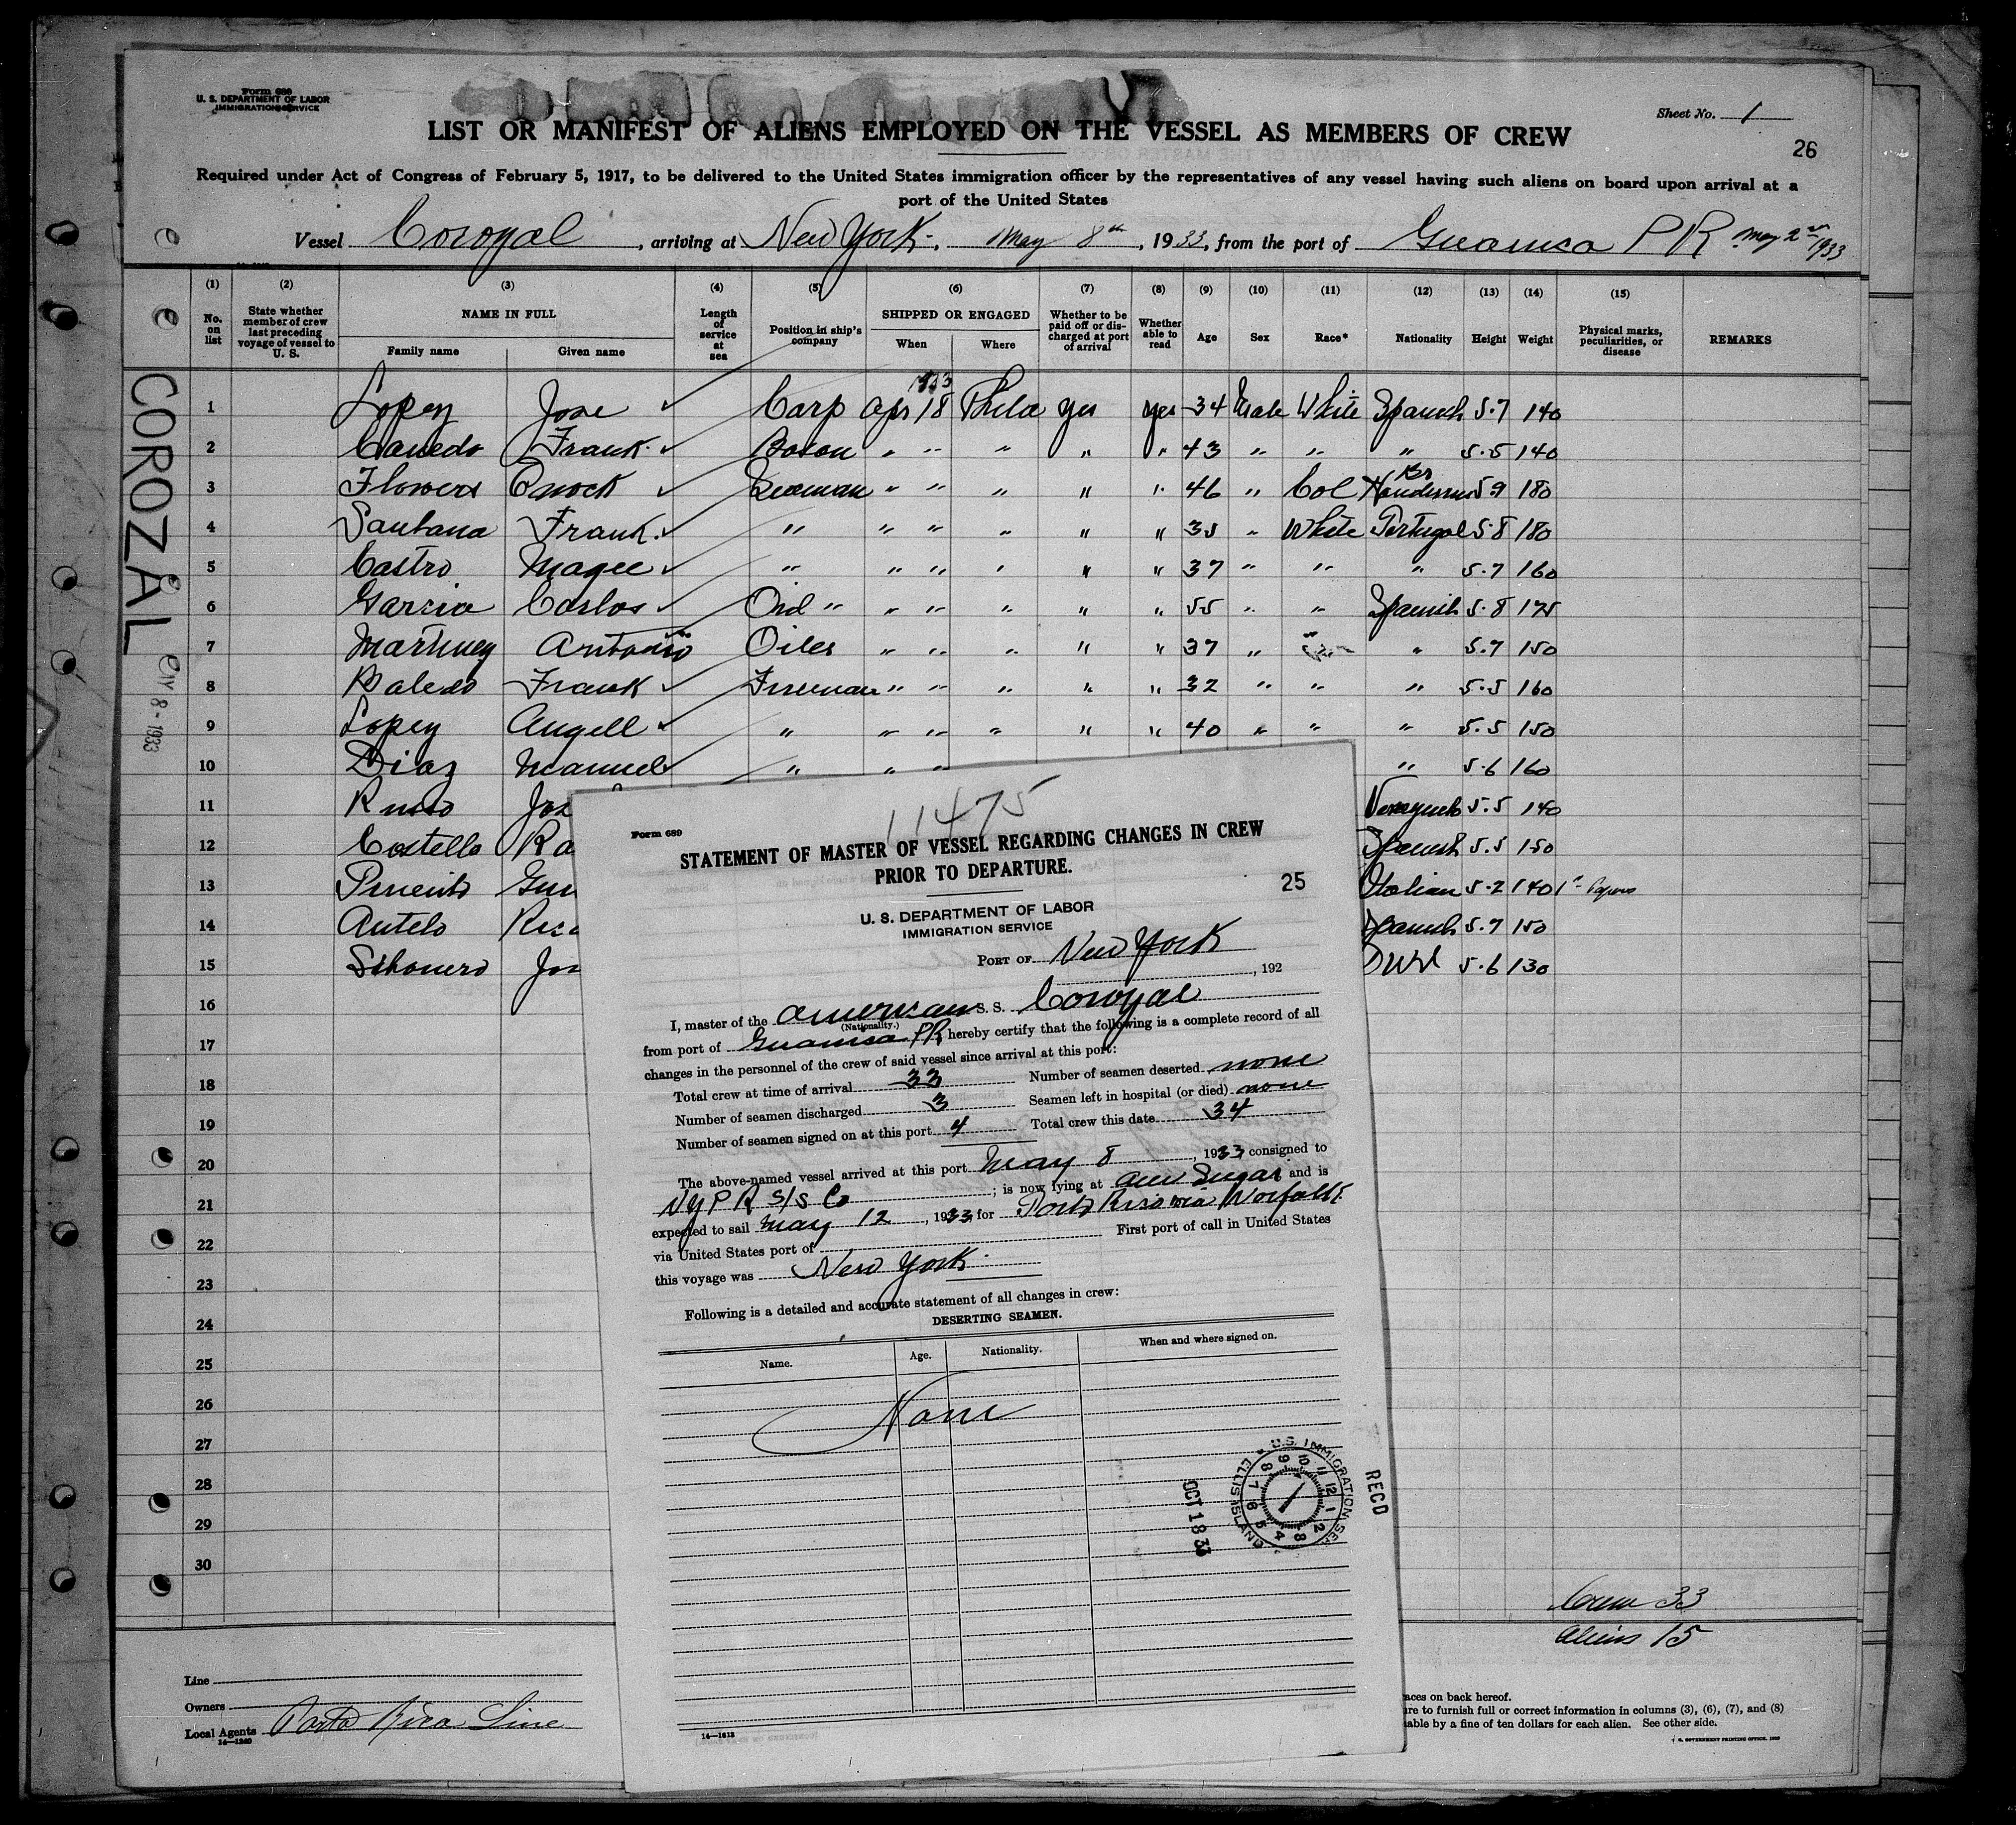 Form 689
U. S. DEPARTMENT OF LABOR
IMMIGRATION SERVICE
Sheet No. 1
LIST OR MANIFEST OF ALIENS EMPLOYED ON THE VESSEL AS MEMBERS OF CREW
26
Required under Act of Congress of February 5, 1917, to be delivered to the United States immigration officer by the representatives of any vessel having such aliens on board upon arrival at a
port of the United States
Vessel Corozal, arriving at New York, May 8th, 1933, from the port of Guanica P R May 2nd 1933
(1) (2) (3) (4) (5) (6) (7) (8) (9) (10) (11) (12) (13) (14) (15)
No. on list
State whether member of crew last preceding voyage of vessel to U. S.
NAME IN FULL
Family name
Given name
Length of service at sea
Position in ship's company
SHIPPED OR ENGAGED
When
Where
Whether to be paid off or discharged at port of arrival
Whether able to read
Age
Sex
Race*
Nationality
Height
Weight
Physical marks, peculiarities, or disease
REMARKS
1933
1 Lopez Jose Carp Apr 18 Phila yes yes 34 Male White Spanish 5.7 140
2 Canedo Frank Boson " " " " " 43 " " " 5.5 140
3 Flowers Enock Seaman " " " " " 46 " Col Br Honderus 5.9 180
4 Santana Frank " " " " " " 35 " White Portugal 5.8 180
5 Castro Magee " " " " " " 37 " " " 5.7 160
6 Garzia Carlos Ord " " " " " " 55 " " Spanish 5.8 175
7 Martinez Antonio Oiler " " " " " 37 " " " 5.7 150
8 Baledo Frank Fireman " " " " " 32 " " " 5.5 160
9 Lopez Angell " " " " " " 40 " " " 5.5 150
10 Diaz Manuel " " " " 5.6 160
11 Russo Jos 5.5 140
12 Costello Ra Spanish 5.5 150
13 Gui Italian 5.2 140 1st Papers
14 Antelo Rica Spanish 5.7 150
15 Jos 5.6 130
16
17
18
19
20
21
22
23
24
25
26
27
28
29
30
COROZAL
8 - 1933
Crew 33
Aliens 15
Line
Owners
Local Agents Porto Rico Line
14—1240
aces on back hereof.
ure to furnish full or correct information in columns (3), (6), (7), and (8)
able by a fine of ten dollars for each alien. See other side.
GOVERNMENT PRINTING OFFICE
11475
Form 689
STATEMENT OF MASTER OF VESSEL REGARDING CHANGES IN CREW
PRIOR TO DEPARTURE.
25
U. S. DEPARTMENT OF LABOR
IMMIGRATION SERVICE
PORT OF New York
, 192
I, master of the American S. S. Corozal
(Nationality.)
from port of Guanica PR hereby certify that the following is a complete record of all
changes in the personnel of the crew of said vessel since arrival at this port:
Total crew at time of arrival 33 Number of seamen deserted none
Number of seamen discharged 3 Seamen left in hospital (or died) none
Number of seamen signed on at this port 4 Total crew this date 34
The above-named vessel arrived at this port May 8, 1933 consigned to
NY P R S/S Co; is now lying at Am Sugar and is
expected to sail May 12, 1933, for Porto Rico via Norfolk
via United States port of First port of call in United States
this voyage was New York
Following is a detailed and accurate statement of all changes in crew:
DESERTING SEAMEN.
Name. Age. Nationality. When and where signed on.
None
RECD
U.S. IMMIGRATION SE
ELLIS ISLAND
OCT 18 33
14—1813